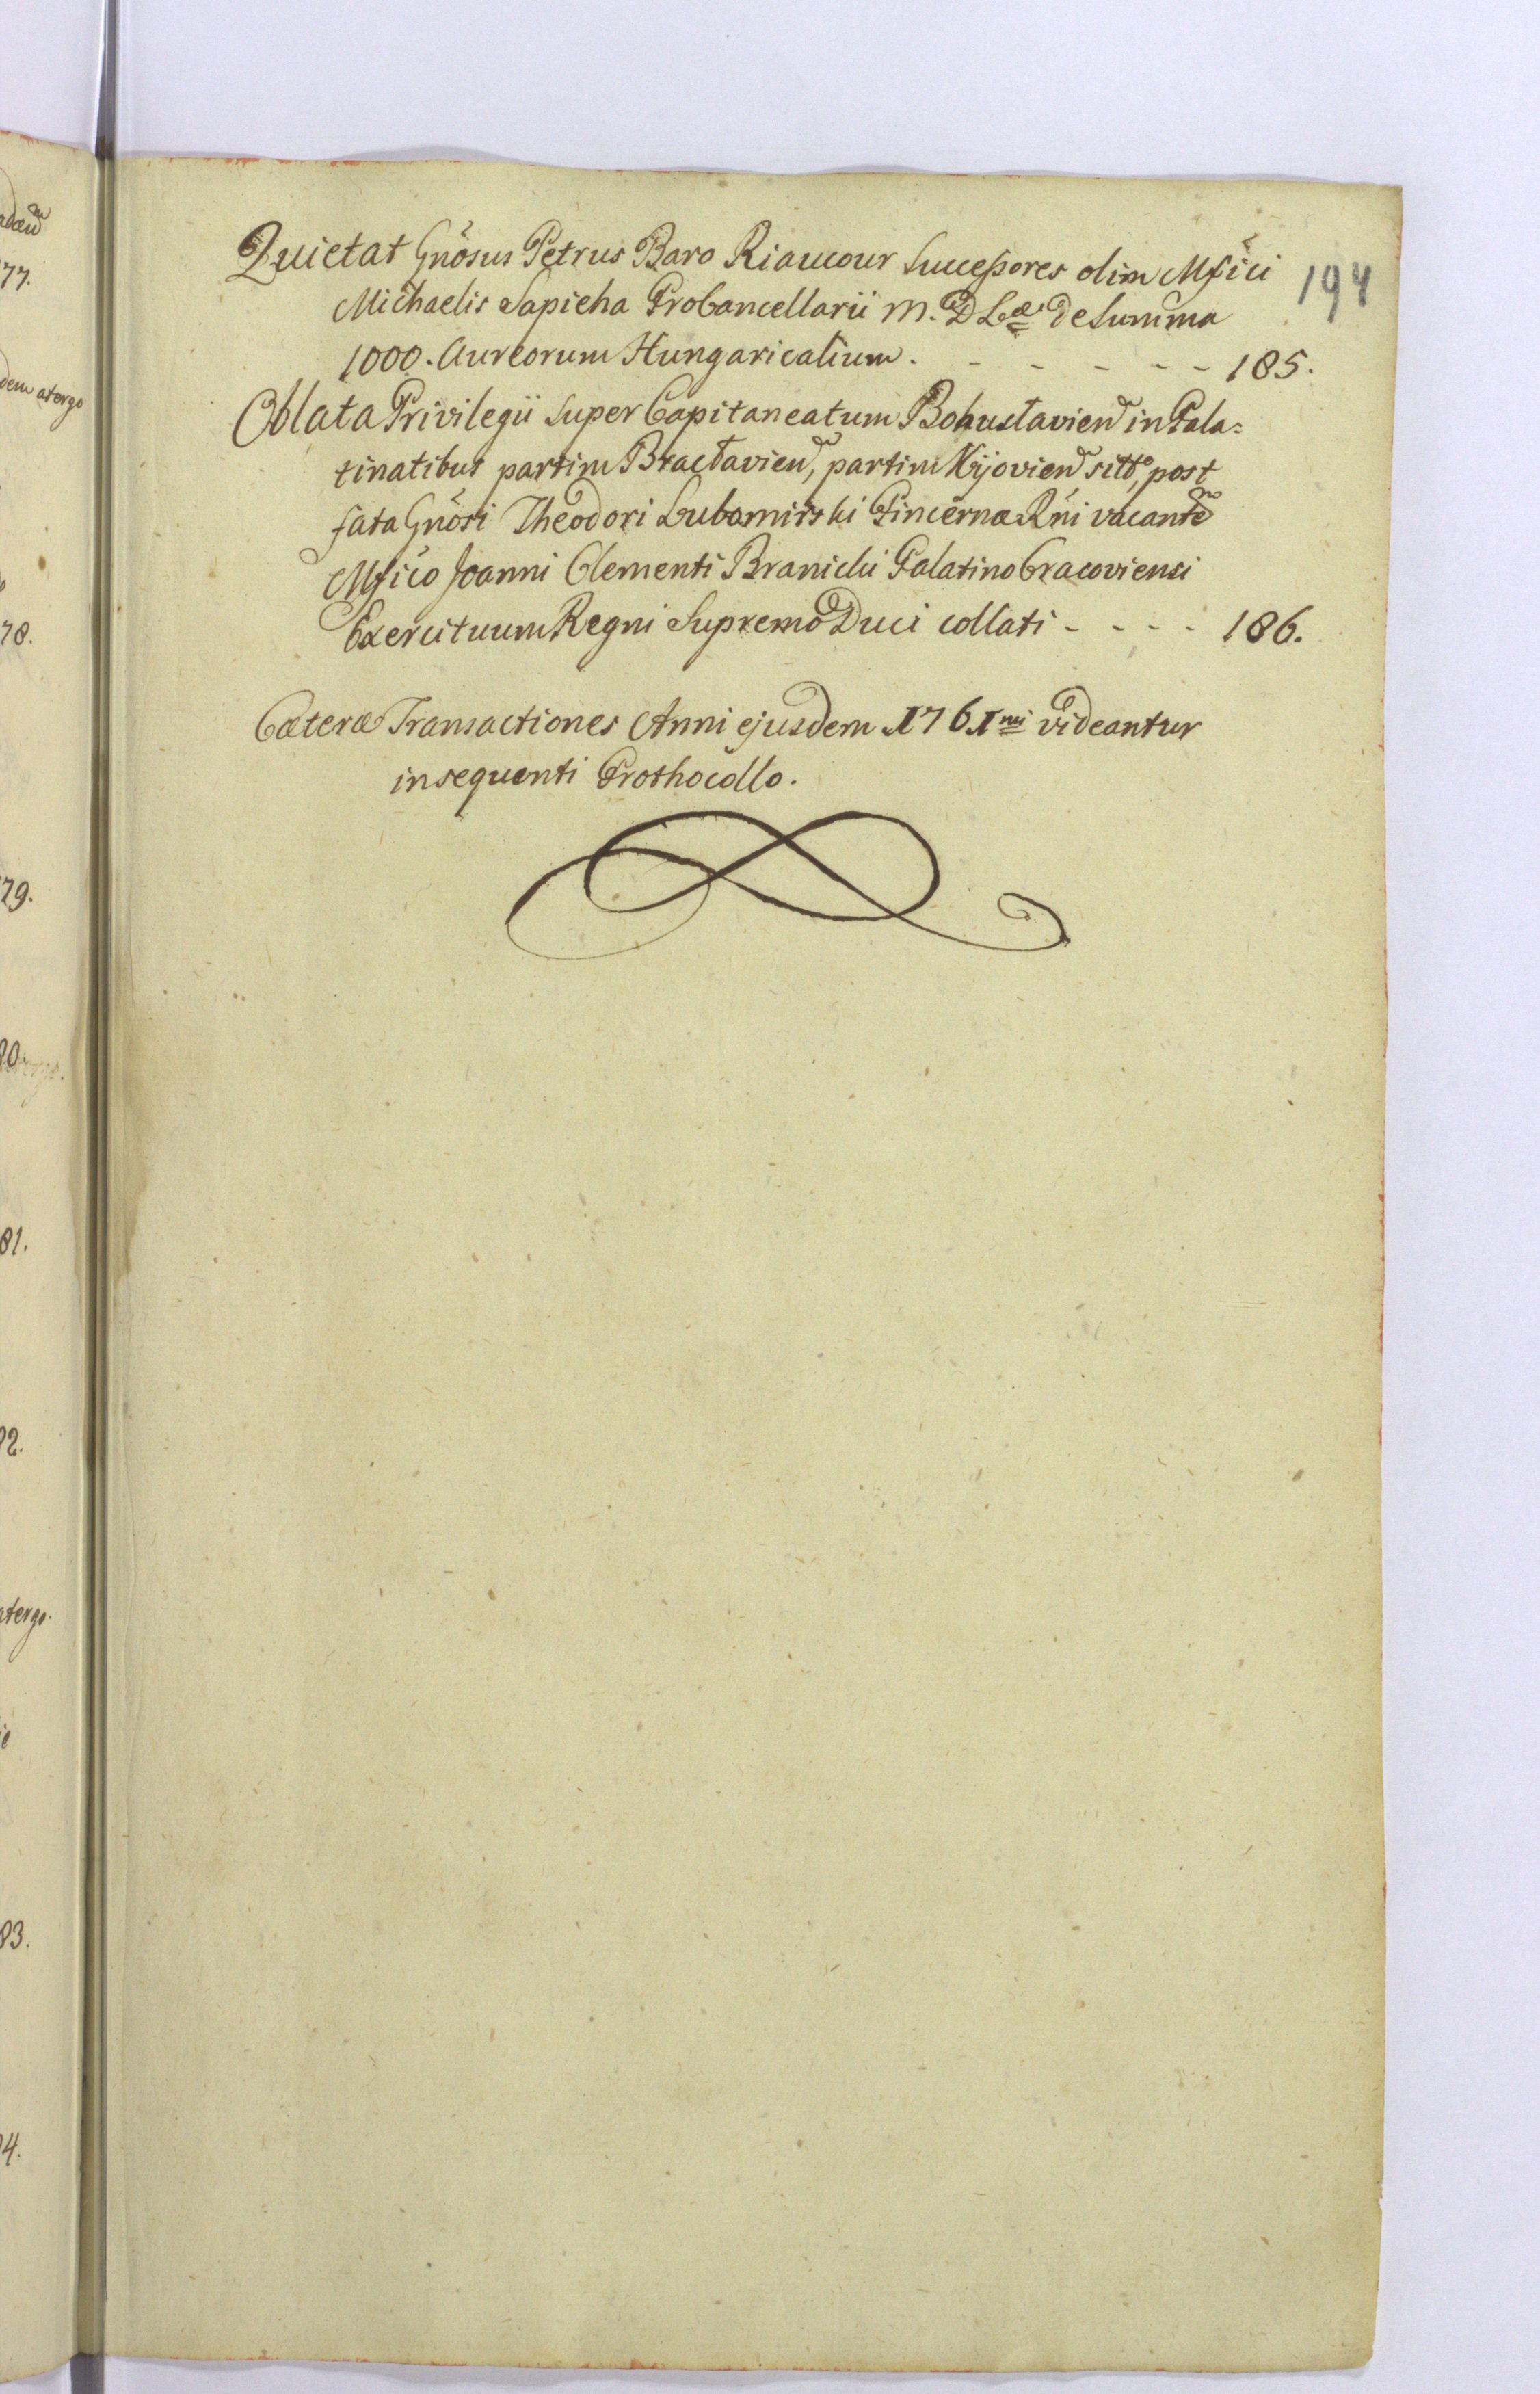 194
Quietat Gnosus Petrus Baro Riaucour Successores olim Mfici
Michaelis Sapieha ProCancellarii M. D Læ de Summa
1000. Aureorum Hungaricalium. - - - - - - 185.
Oblata Privilegii Super Capitaneatum Bohuslavien in Pala=
tinatibus partim Braclavien, partim Kijovien sitto, post
fata Gnosi Theodori Lubomirski Pincernæ Rni vacante
Mfico Joanni Clementi Branicki Palatino Cracoviensi
Exercituum Regni Supremo Duci collati - - - - 186.
Cæteræ Transactiones Anni ejusdem 1761mi videantur
in sequenti Prothocollo.
77.
dem atergo
78.
79.
81.
atergo.
83.